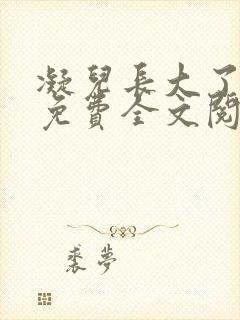 凝兒長大了
免費全文閱
裘夢